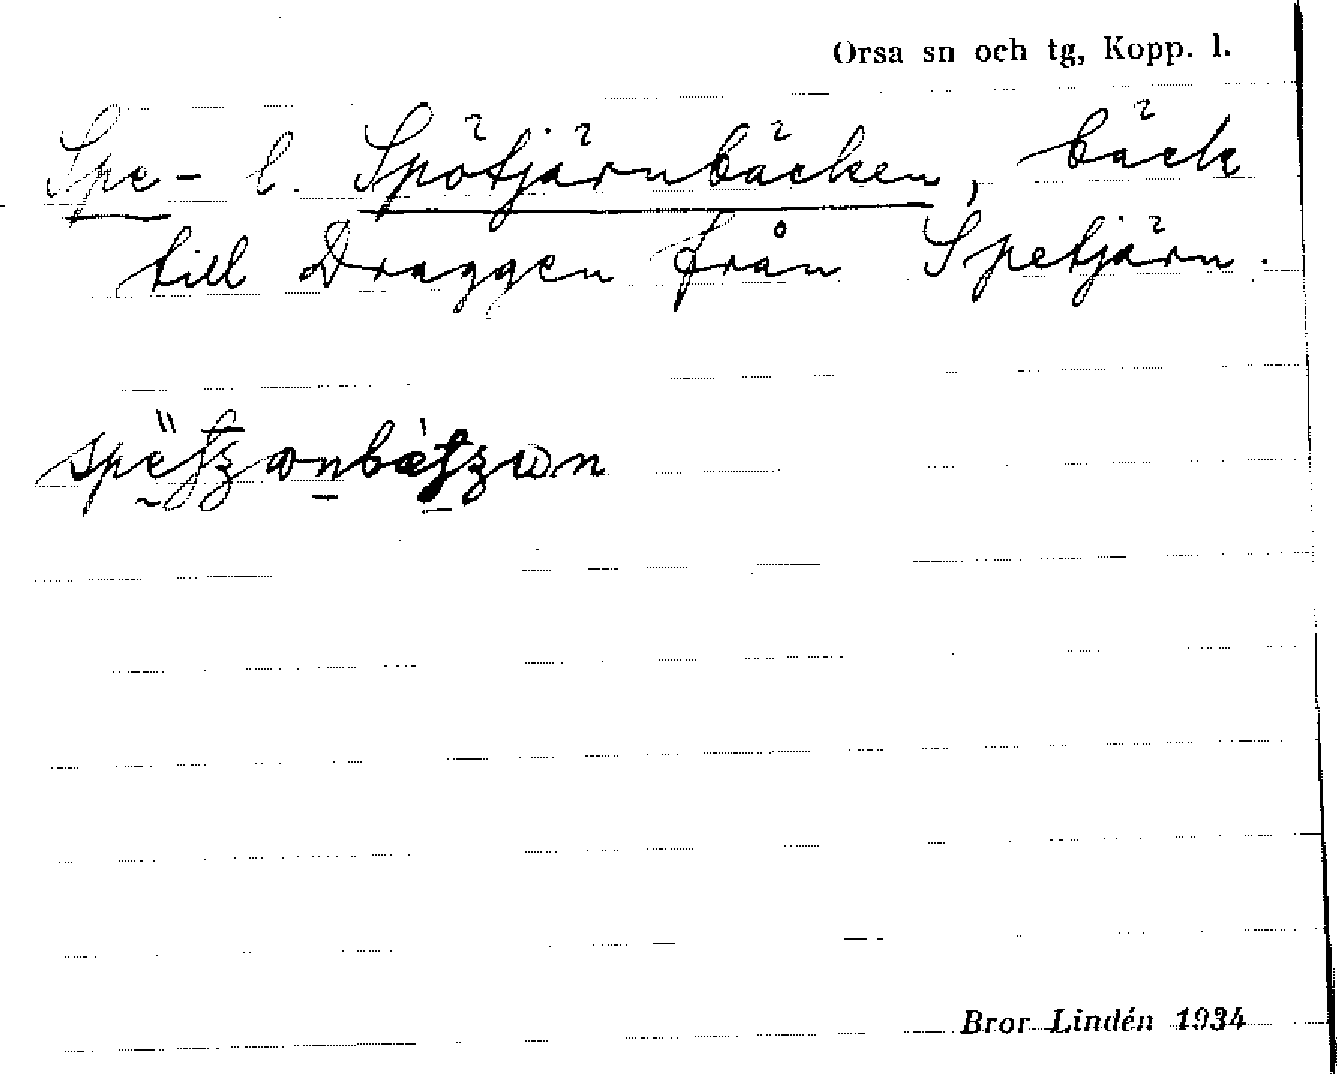 Orsa sn och tg, Kopp. l.
Spe- l. Spötjärnbäcken, bäck
till Draggen från Spetjärn.
Bror Lindén 1934